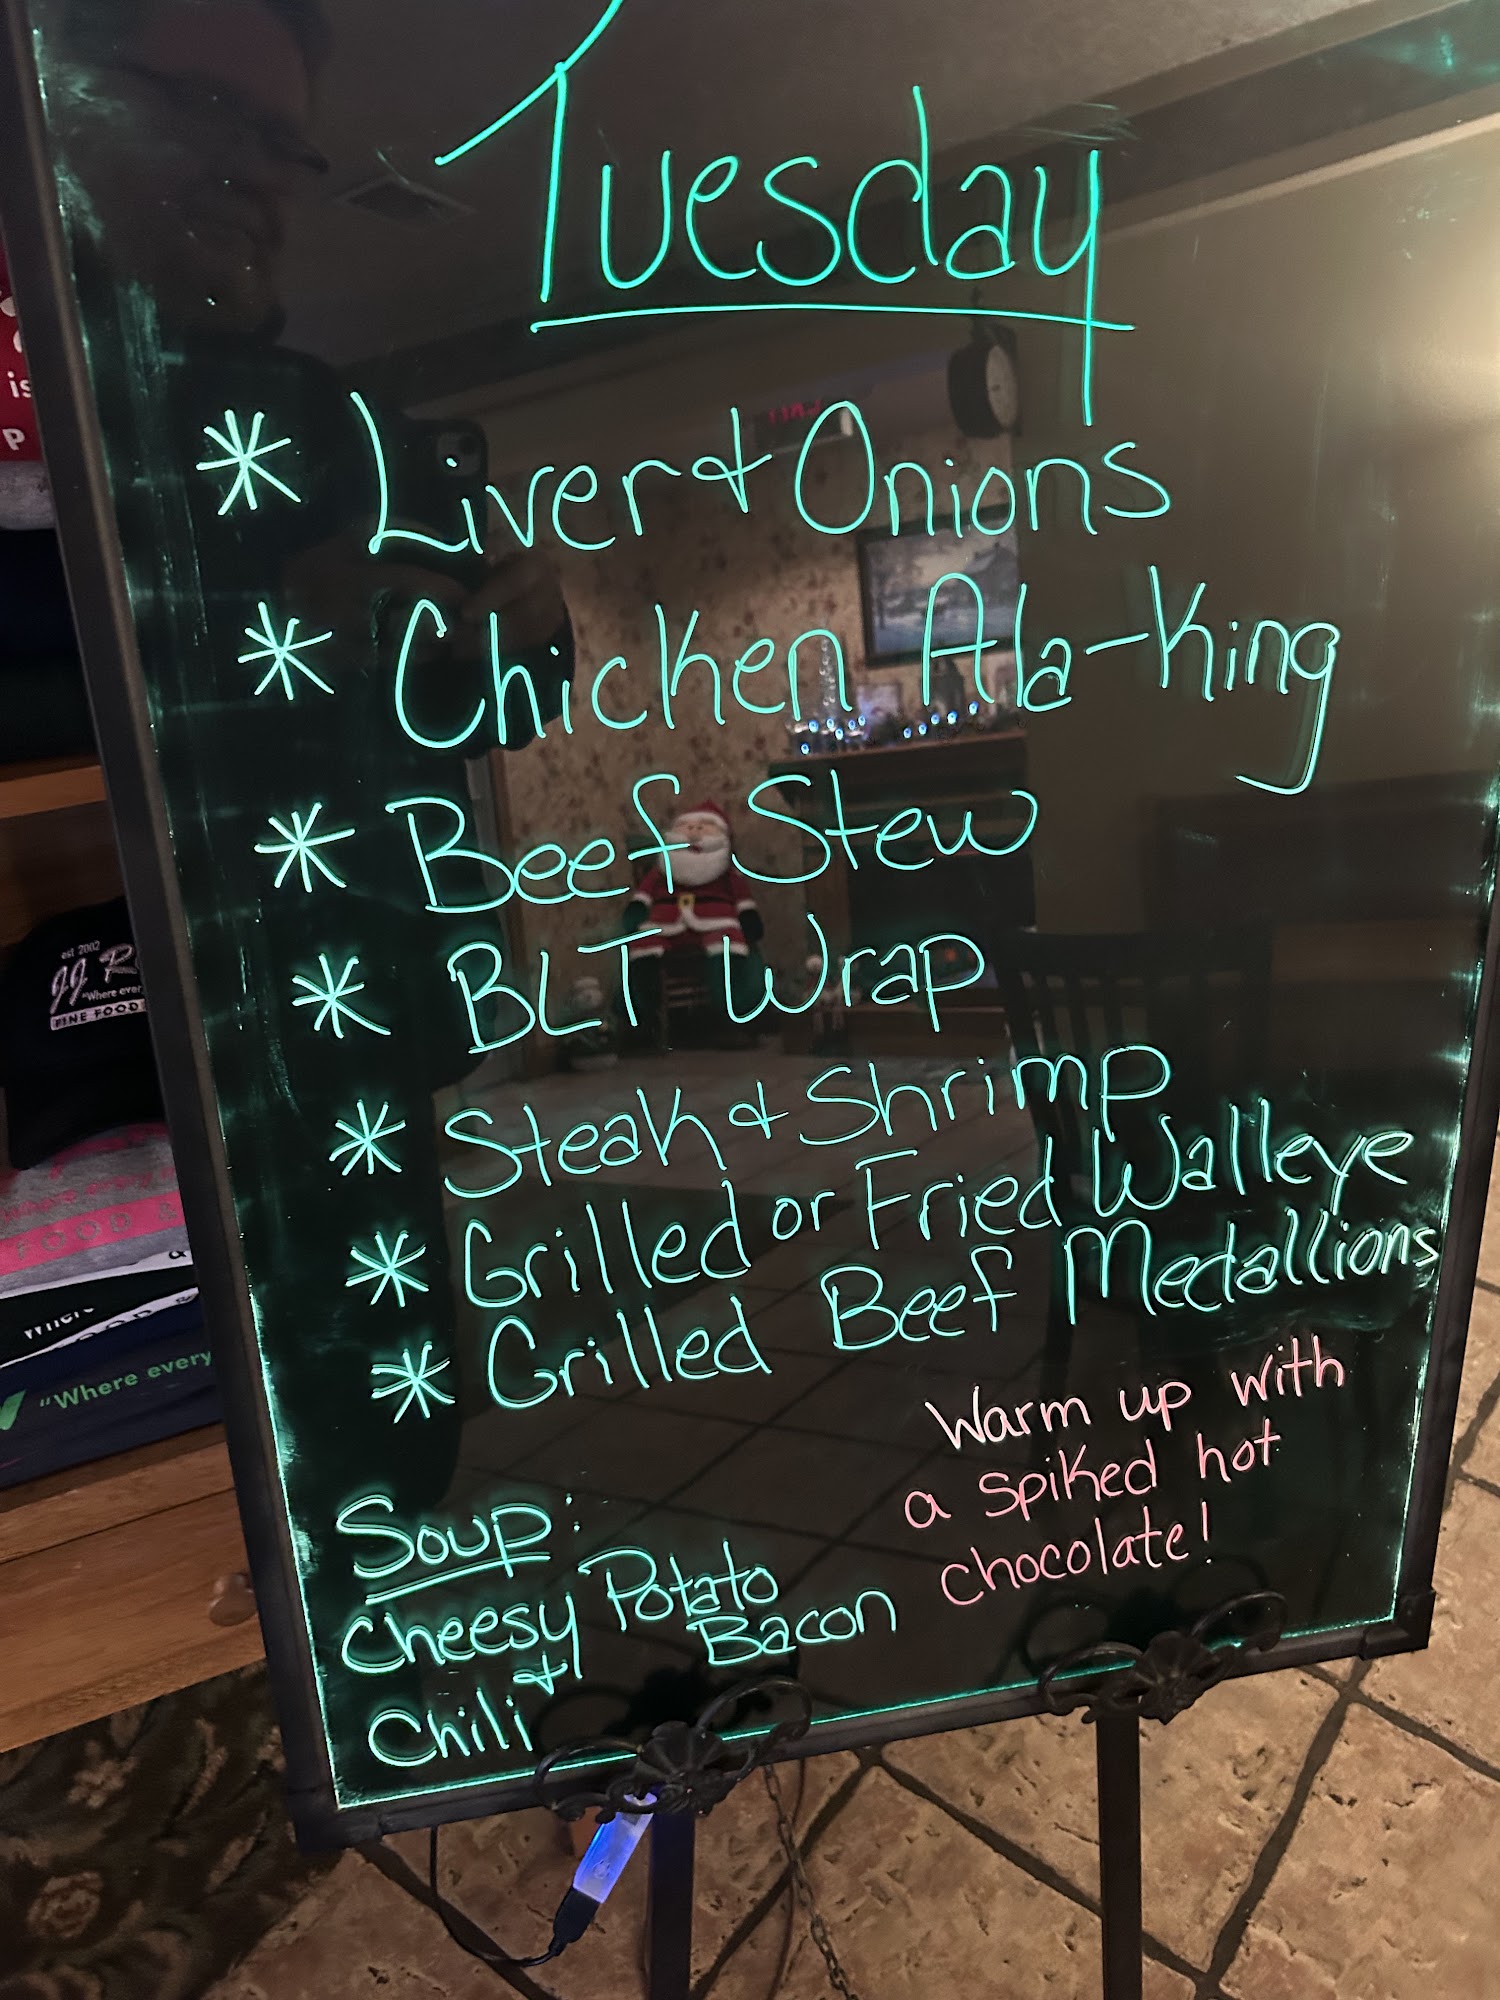 Tuesday
* Liver & Onions
* Chicken Ala-King
* Beef Stew
* BLT Wrap
* Steak & Shrimp
* Grilled or Fried Walleye
* Grilled Beef Medallions
Warm up with
a spiked hot
chocolate!
Soup:
Cheesy Potato
Bacon
&
Chili
is
P
est 2002
JJ R
"Where ever
FINE FOOD
FOOD &
"Where every